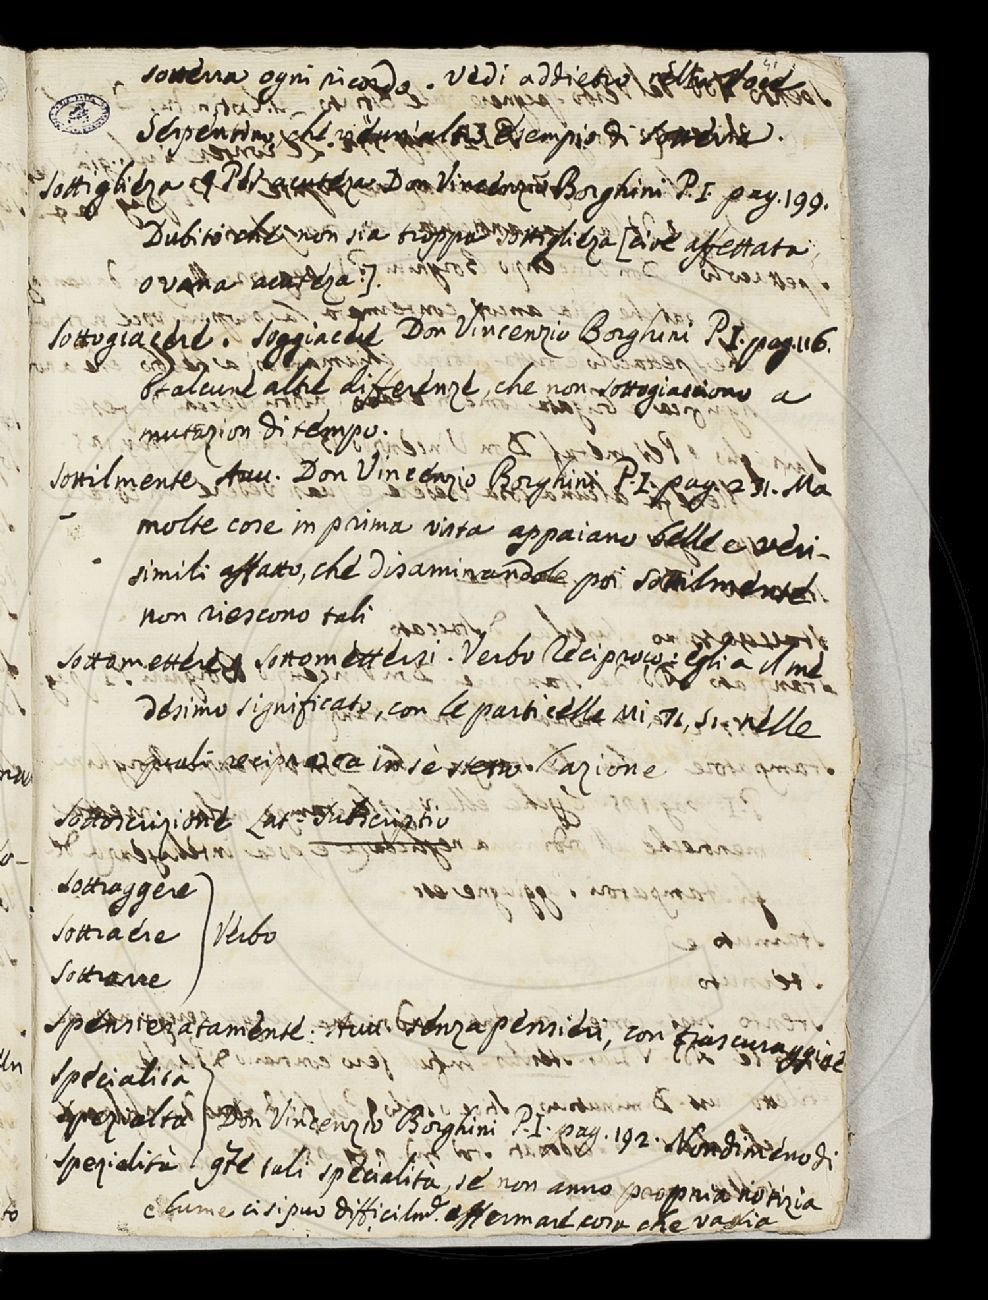 sotterra ogni ricordo. Vedi addietro nella Voce
Serpentino, che vi è un altro Esempio di sotterra.
Sottigliezza § Per acutezza Don Vincenzio Borghini P. I. pag. 199.
Dubito che non sia troppa sottigliezza [cioè affettata
o vana acutezza].
Sottogiacere. Soggiacere Don Vincenzio Borghini P. I. pag. 116.
et alcune altre differenze, che non sottogiacciono a
mutazion di tempo.
Sottilmente Avv. Don Vincenzio Borghini P. I. pag. 231. Ma
molte cose in prima vista appaiano belle e veri-
simili affatto, che disaminandole poi sottilmente
non riescono tali
Sottomettere, Sottomettersi. Verbo Reciproco: egli a il me
desimo significato, con le particelle Mi, Ti, Si. nelle
quali reciproca in sè stesso l'azione
Sottoscrizione Lat. Subscriptio
Sottraggere
Sottraere Verbo
Sottrarre
Spensieratamente. Avv. senza pensieri, con trascuraggine
Specialità
Spezialtà Don Vincenzio Borghini P. I. pag. 192. Nondimeno di
Spezialità q.te tali specialità, se non anno propria notizia
e lume ci si può difficilm.e affermare cosa che vaglia